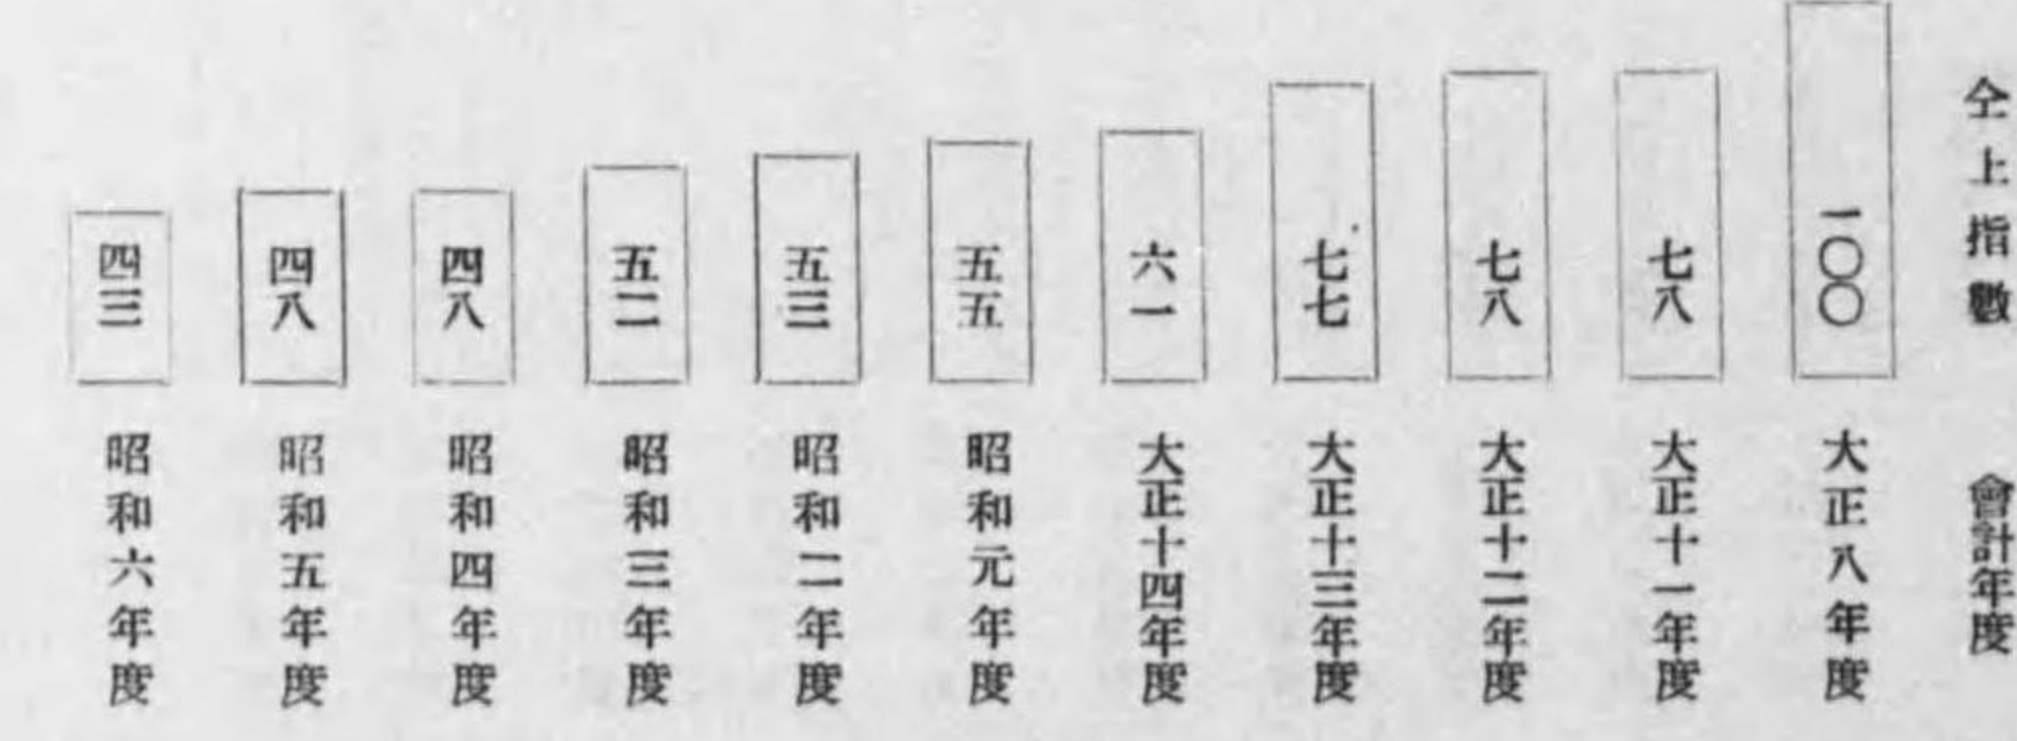 仝上指數
會計年度
一〇〇
大正八年度
七八
大正十一年度
七八
大正十二年度
七七
大正十三年度
六一
大正十四年度
五五
昭和元年度
五三
昭和二年度
五二
昭和三年度
四八
昭和四年度
四八
昭和五年度
四三
昭和六年度